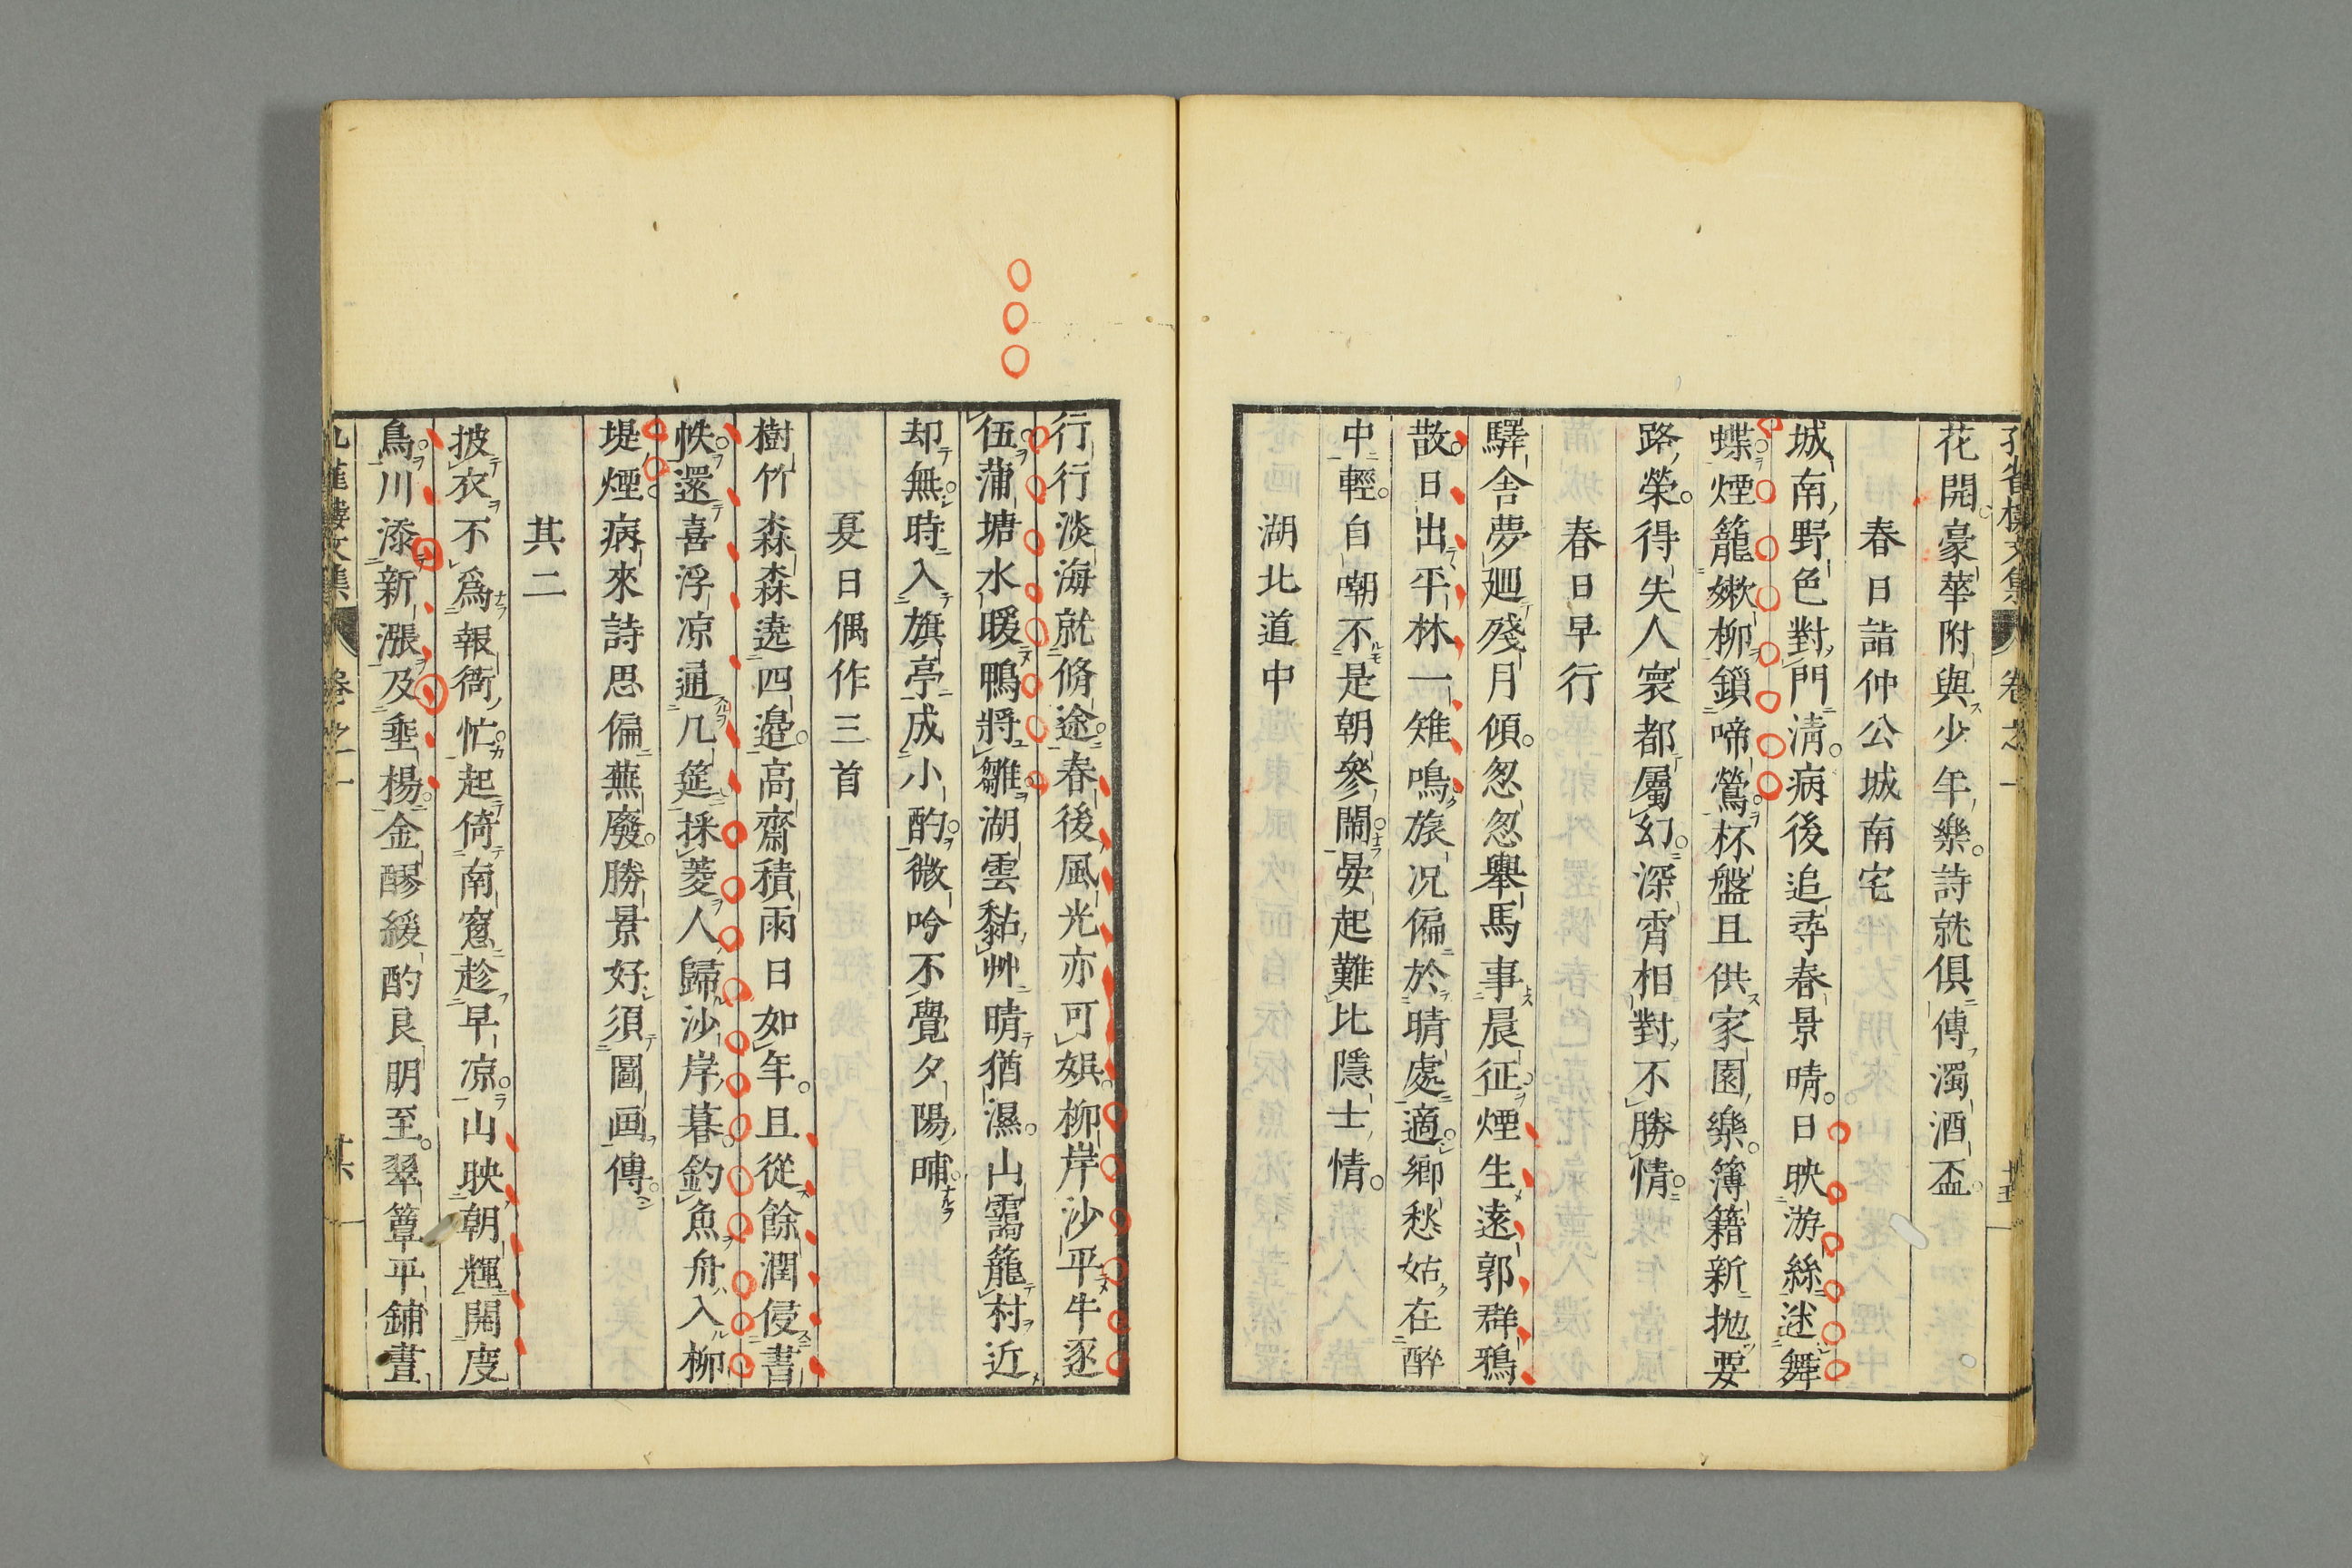 花開豪華附與少年樂詩就俱傳濁酒盃
春日詣仲公城南宅
城南野色對門淸病後追尋春景晴日映游絲迷舞
蝶煙籠嫰柳鎖啼鶯杯盤且供家園樂簿籍新抛要
路榮得失人寰都屬幻深宵相對不勝情
春日早行
驛舍夢廻殘月傾怱怱舉馬事晨征煙生遠郭群鴉
散日出平林一雉鳴旅況偏於晴處適鄉愁姑在醉
中輕自嘲不是朝參鬧晏起難比隱士情
湖北道中
行行淡海就脩途春後風光亦可娯柳岸沙平牛逐
伍蒲塘水暖鴨將雛湖雲黏艸晴猶濕山靄籠村近
却無時入旗亭成小酌微吟不覺夕陽晡
夏日偶作三首
樹竹森森遶四邉高齋積雨日如年且從餘潤侵書
帙還喜浮凉通几筵採菱人歸沙岸暮釣魚舟入柳
堤煙病來詩思偏蕪廢勝景好須圖画傳
其二
披衣不爲報衙忙起倚南窻趁早凉山映朝輝開度
鳥川添新漲及垂楊金醪緩酌良朋至翠簟平鋪晝